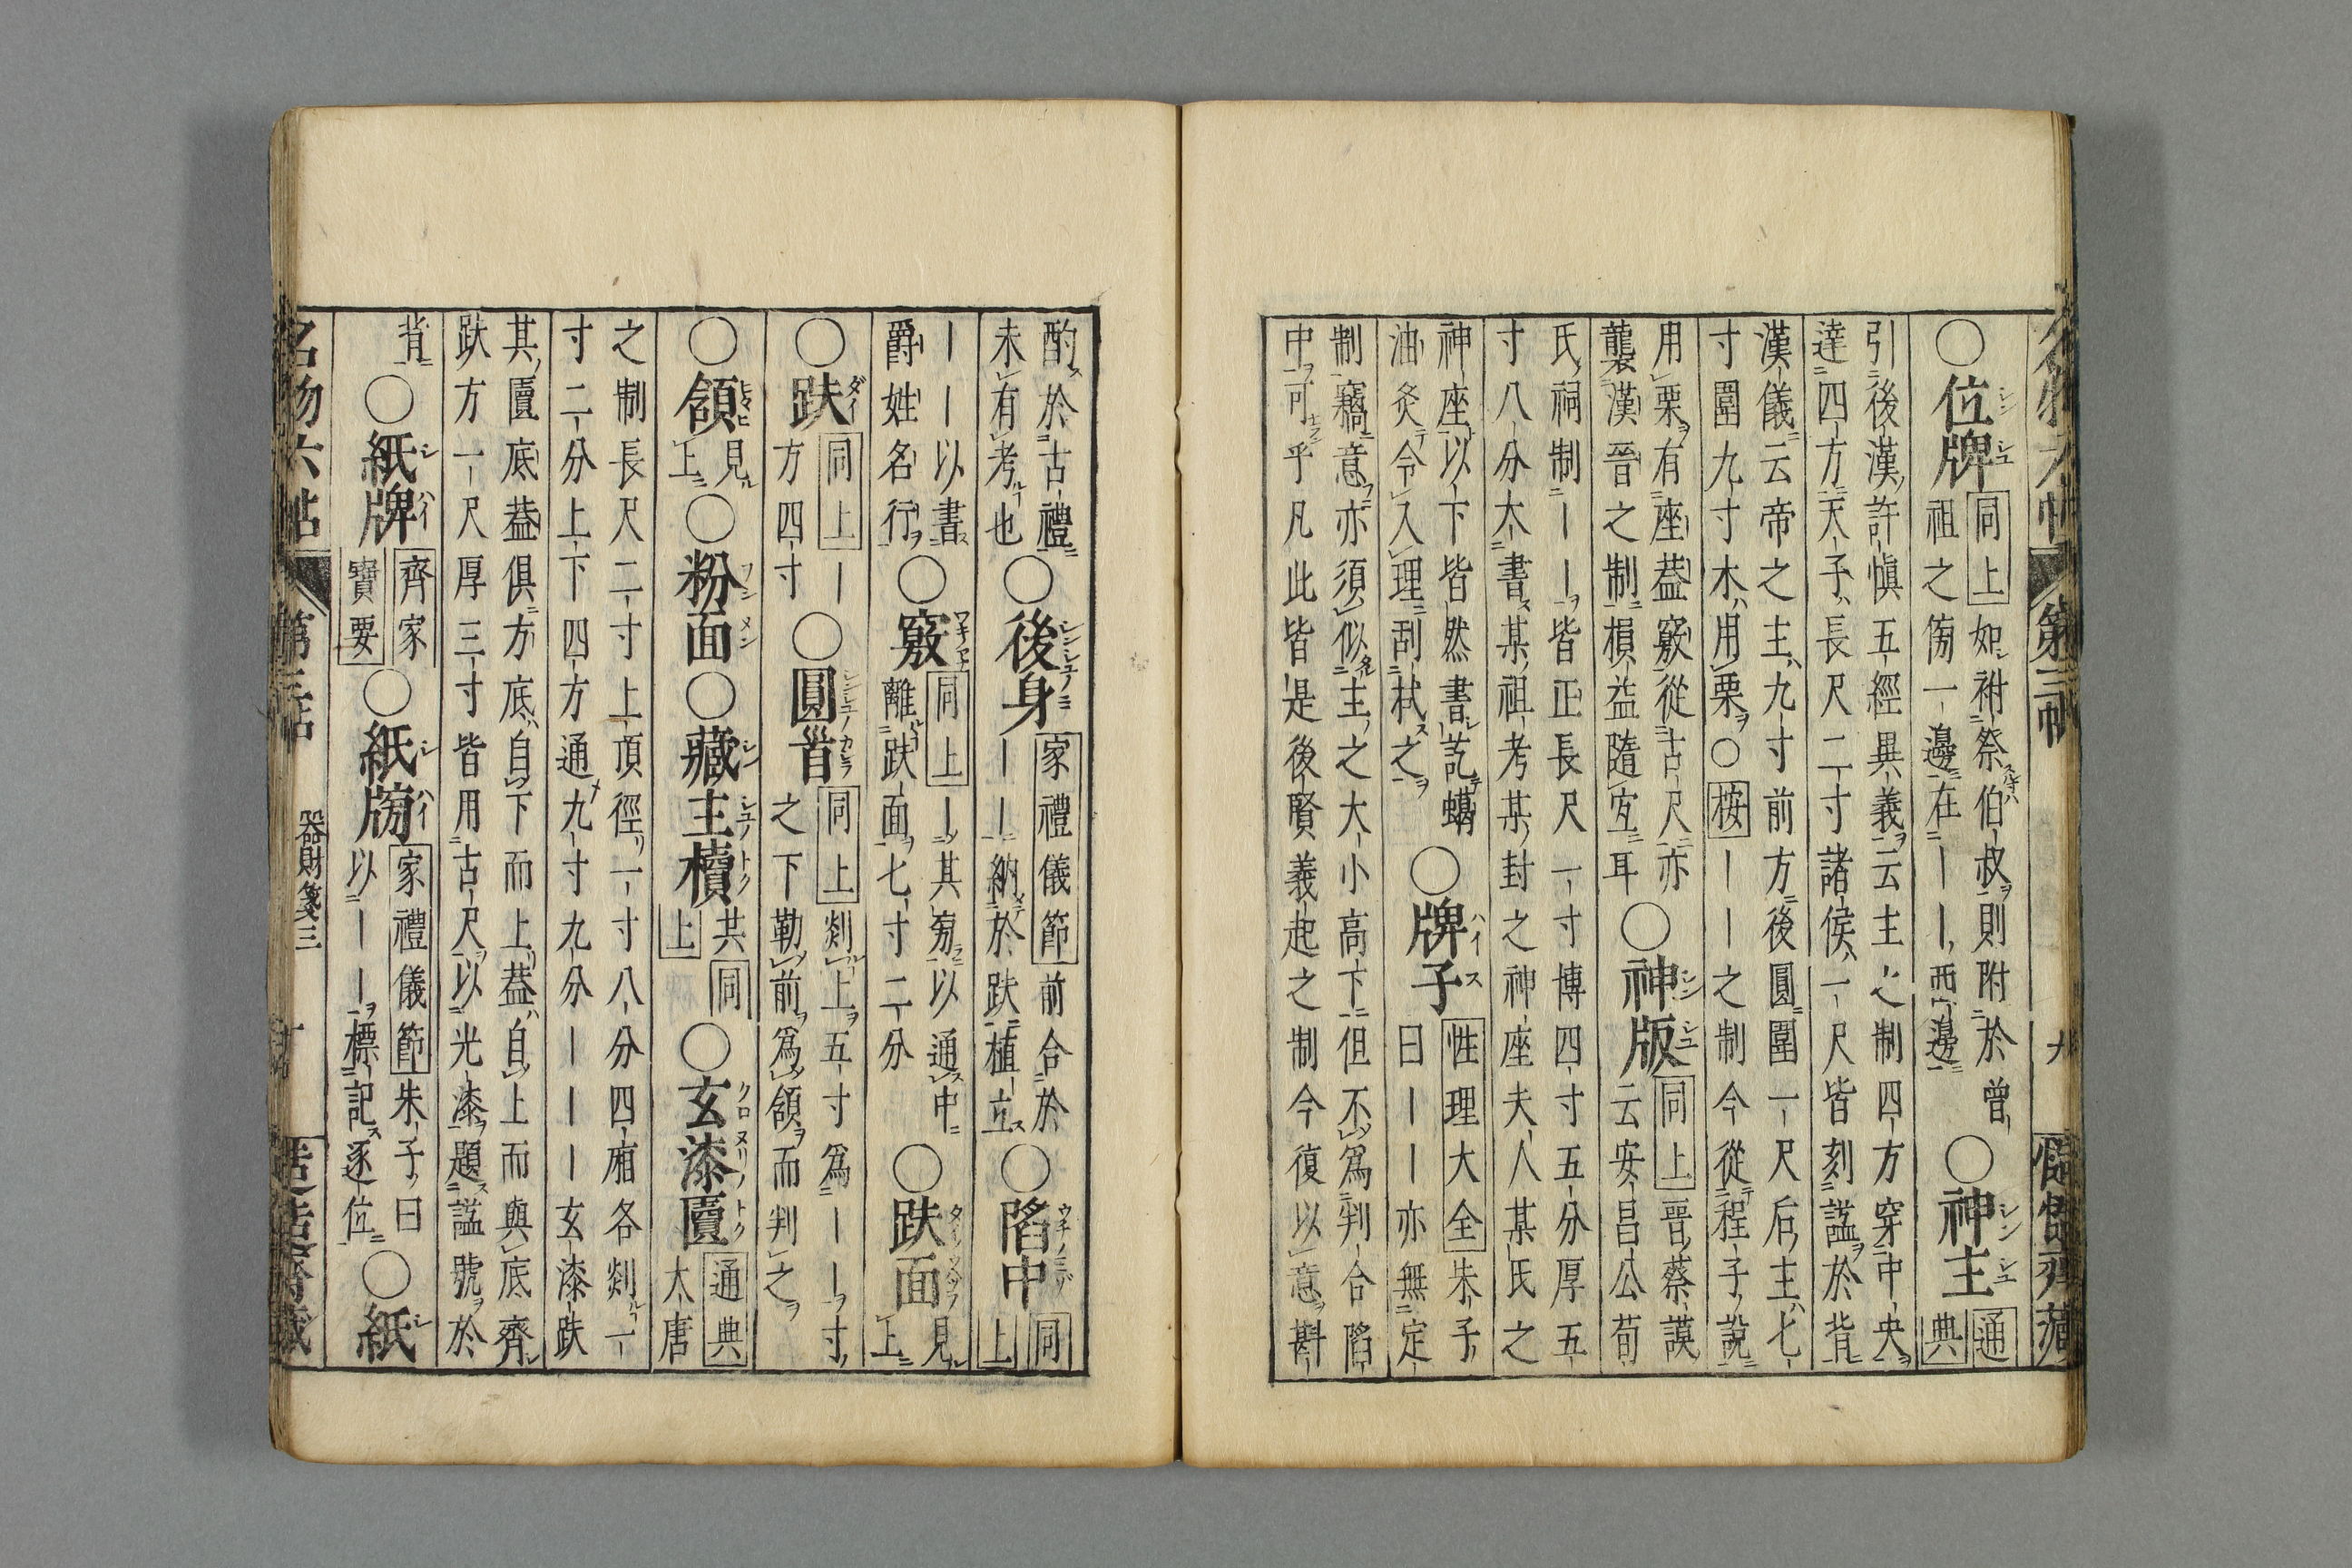 名物六帖 第三帖 九 奎文齋藏
〇位牌 同上 如祔祭伯叔則附於曾
祖之傍一邊在丨丨西邊 〇神主 通典
引後漢許愼五經異義云主之制四方穿中央
達四方天子長尺二寸諸侯一尺皆刻諡於背
漢儀云帝之主九寸前方後圓圍一尺后主七
寸圍九寸木用栗〇按丨丨之制今從程子說
用栗有座葢竅從古尺亦
襲漢晉之制損益隨宐耳 〇神版 同上 晉蔡謨
云安昌公荀
氏祠制丨丨皆正長尺一寸博四寸五分厚五
寸八分大書某祖考某封之神座夫人某氏之
神座以下皆然書訖蠟
油灸令入理刮拭之 〇牌子 性理大全 朱子
曰丨丨亦無定
制竊意亦須似主之大小高下但不爲判合陷
中可乎凡此皆是後賢義起之制今復以意斟
酌於古禮
未有考也 〇後身 家禮儀節 前合於
丨丨納於趺植立 〇陷中 同上
丨丨以書
爵姓名行 〇竅 同上 丨其旁以通中
離趺面七寸二分 〇趺面 見上
〇趺 同上 丨
方四寸 〇圓首 同上 剡上五寸爲丨丨寸
之下勒前爲頷而判之
〇頷 見上 〇粉面 〇藏主櫝 共同上 〇玄漆匵 通典
大唐
之制長尺二寸上頂徑一寸八分四廂各剡一
寸二分上下四方通九寸九分丨丨丨玄漆趺
其匵底葢俱方底自下而上葢自上而與底齊
趺方一尺厚三寸皆用古尺以光漆題諡號於
背 〇紙牌 齊家寶要 〇紙牓 家禮儀節 朱子曰
以丨丨標記逐位 〇紙
名物六帖 第三帖 器財箋三